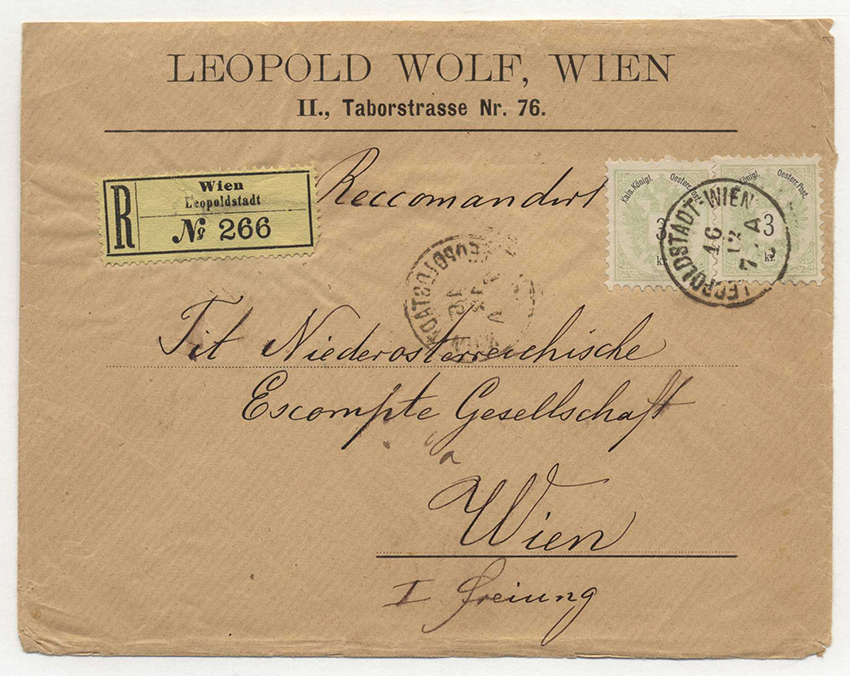 LEOPOLD WOLF, WIEN
II., Taborstrasse Nr. 76.
R
Wien
Leopoldstadt
№ 266
Reccomandirt
Kais. Königl. Oesterr. Post.
3
kr.
Königl. Oesterr. Post.
3
kr.
LEOPOLDSTADT-WIEN
16
12
7 A
LEOPOLDSTADT
Tit Niederösterreichische
Escompte Gesellschaft
Wien
I Freiung